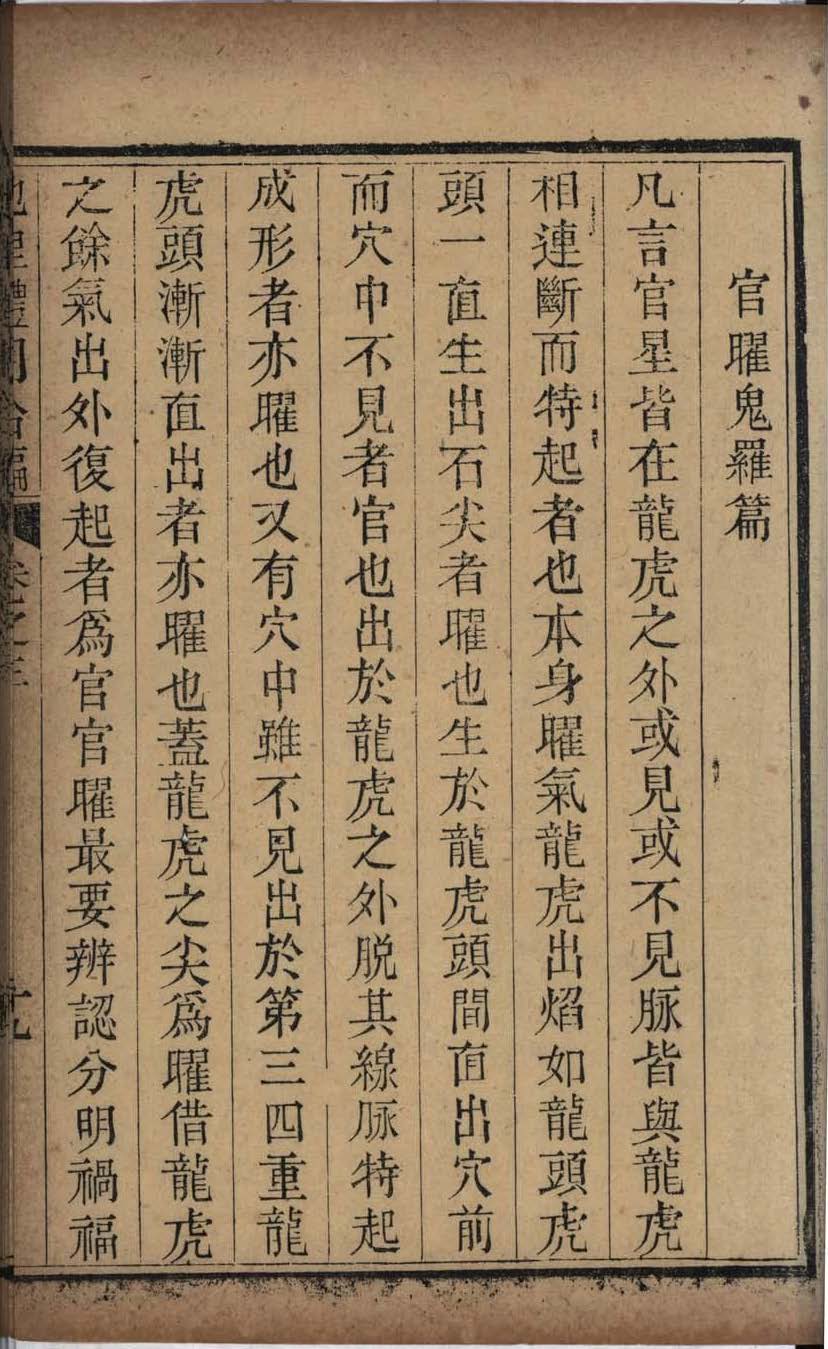 官曜鬼羅篇
凡言官星皆在龍虎之外或見或不見脉皆與龍虎
相連斷而特起者也本身曜氣龍虎出焰如龍頭虎
頭一直生出石尖者曜也生於龍虎頭間直出穴前
而穴中不見者官也出於龍虎之外脱其線脉特起
成形者亦曜也又有穴中雖不見出於第三四重龍
虎頭漸漸直出者亦曜也蓋龍虎之尖為曜借龍虎
之餘氣出外復起者為官官曜最要辨認分明禍福
卷之三